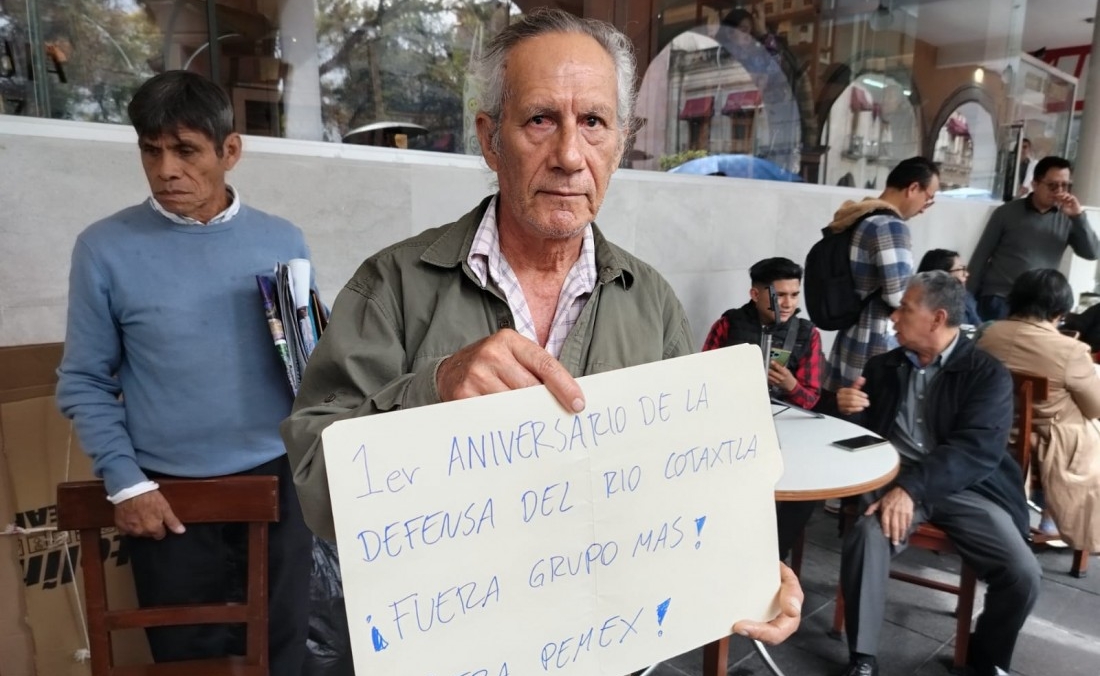 1er ANIVERSARIO DE LA
DEFENSA DEL RIO COTAXTLA
¡FUERA GRUPO MAS!
PEMEX!